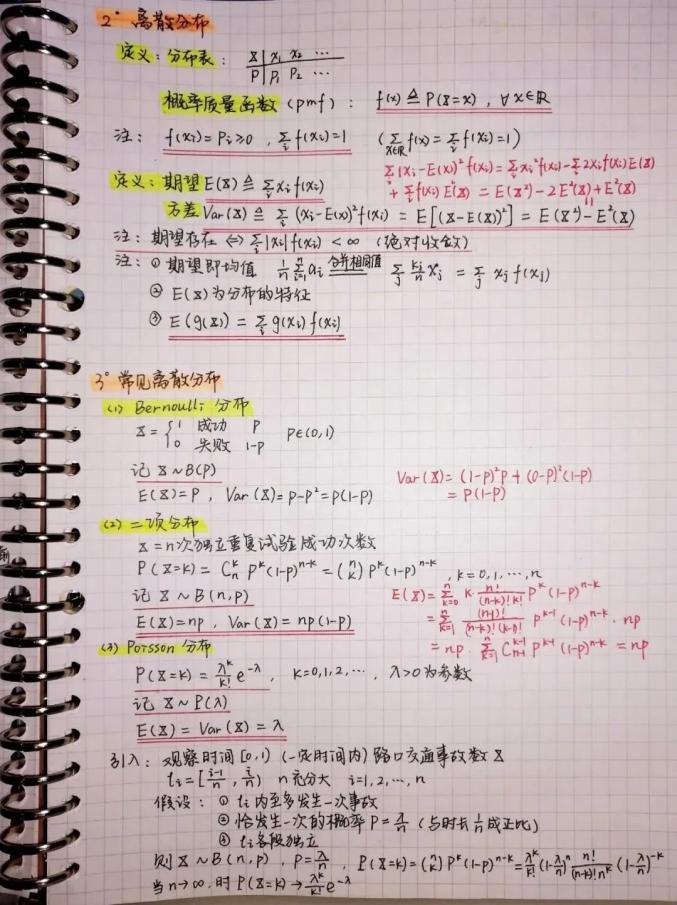 2° 离散分布
定义：分布表： X | x₁ x₂ ⋯
P | P₁ P₂ ⋯
概率质量函数 (pmf)： f(x) ≜ P(X=x) , ∀x∈ℝ
注： f(xᵢ)=Pᵢ≥0 , Σᵢ f(xᵢ)=1 (Σ_{x∈ℝ} f(x) = Σᵢ f(xᵢ)=1)
Σᵢ(xᵢ-E(X))² f(xᵢ) = Σᵢ xᵢ² f(xᵢ) - Σᵢ 2xᵢ f(xᵢ) E(X)
定义：期望 E(X) ≜ Σᵢ xᵢ f(xᵢ)
+ Σᵢ f(xᵢ) E²(X) = E(X²) - 2E²(X) + E²(X)
方差 Var(X) ≜ Σᵢ (xᵢ-E(X))² f(xᵢ) = E[(X-E(X))²] = E(X²) - E²(X)
注：期望存在 ⇔ Σᵢ |xᵢ| f(xᵢ) < ∞ (绝对收敛)
注：① 期望即均值 1/n Σ_{i=1}^{n} aᵢ 合并相同值 Σⱼ kⱼ/n xⱼ = Σⱼ xⱼ f(xⱼ)
② E(X)为分布的特征
③ E(g(X)) = Σᵢ g(xᵢ) f(xᵢ)
3° 常见离散分布
(1) Bernoulli 分布
X = { 1 成功 P
0 失败 1-P P∈(0,1)
记 X ~ B(P)
Var(X) = (1-P)²P + (0-P)²(1-P)
E(X)=P , Var(X)=P-P²=P(1-P)
= P(1-P)
(2) 二项分布
X = n次独立重复试验成功次数
P(X=k) = C_n^k P^k (1-P)^{n-k} = (n k) P^k (1-P)^{n-k} , k=0,1,⋯,n
记 X ~ B(n,p)
E(X) = Σ_{k=0}^{n} k · n!/((n-k)!k!) P^k (1-P)^{n-k}
E(X)=np , Var(X) = np(1-p)
= Σ_{k=1}^{n} (n-1)!/((n-k)!(k-1)!) P^{k-1} (1-P)^{n-k} · np
= np · Σ_{k=1}^{n} C_{n-1}^{k-1} P^{k-1} (1-P)^{n-k} = np
(3) Poisson 分布
P(X=k) = λ^k/k! e^{-λ} , k=0,1,2,⋯ , λ>0为参数
记 X ~ P(λ)
E(X) = Var(X) = λ
引入：观察时间 [0,1) (一定时间内) 路口交通事故数 X
tᵢ = [i-1/n , i/n) n充分大 i=1,2,⋯,n
假设：① tᵢ内至多发生一次事故
② 恰发生一次的概率 P=λ/n (与时长 1/n 成正比)
③ tᵢ各段独立
则 X ~ B(n,p) , P=λ/n , P(X=k) = (n k) P^k (1-P)^{n-k} = λ^k/k! (1-λ/n)^n n!/((n-k)!n^k) (1-λ/n)^{-k}
当 n→∞ 时 P(X=k) → λ^k/k! e^{-λ}